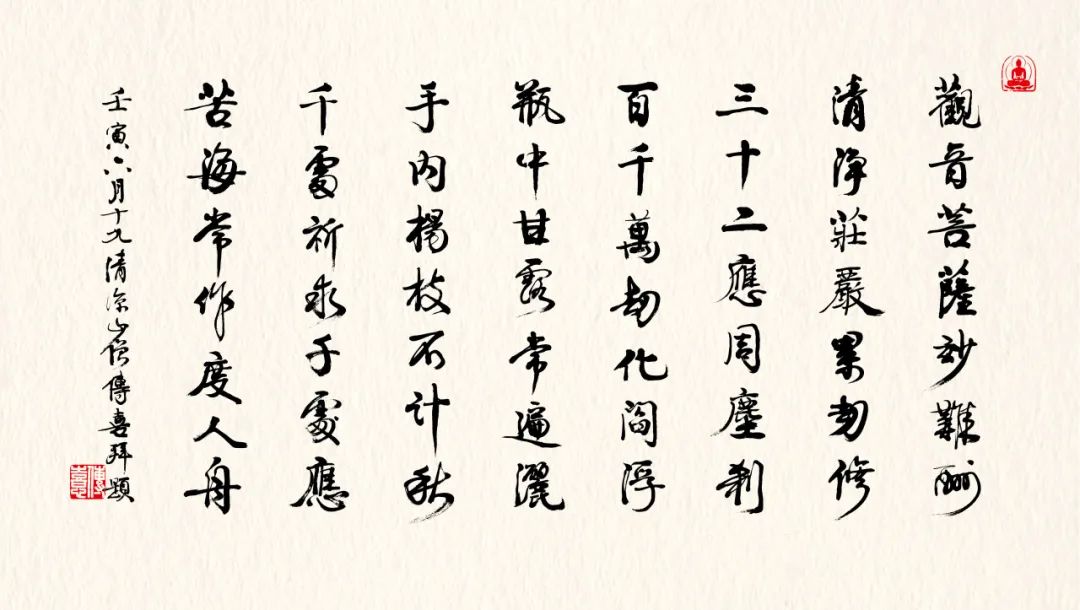 觀音菩薩妙難酬
清淨莊嚴累劫修
三十二應周塵刹
百千萬劫化閻浮
瓶中甘露常遍灑
手內楊枝不計秋
千處祈求千處應
苦海常作度人舟
壬寅八月十九清涼山僧傳喜拜題
傳喜